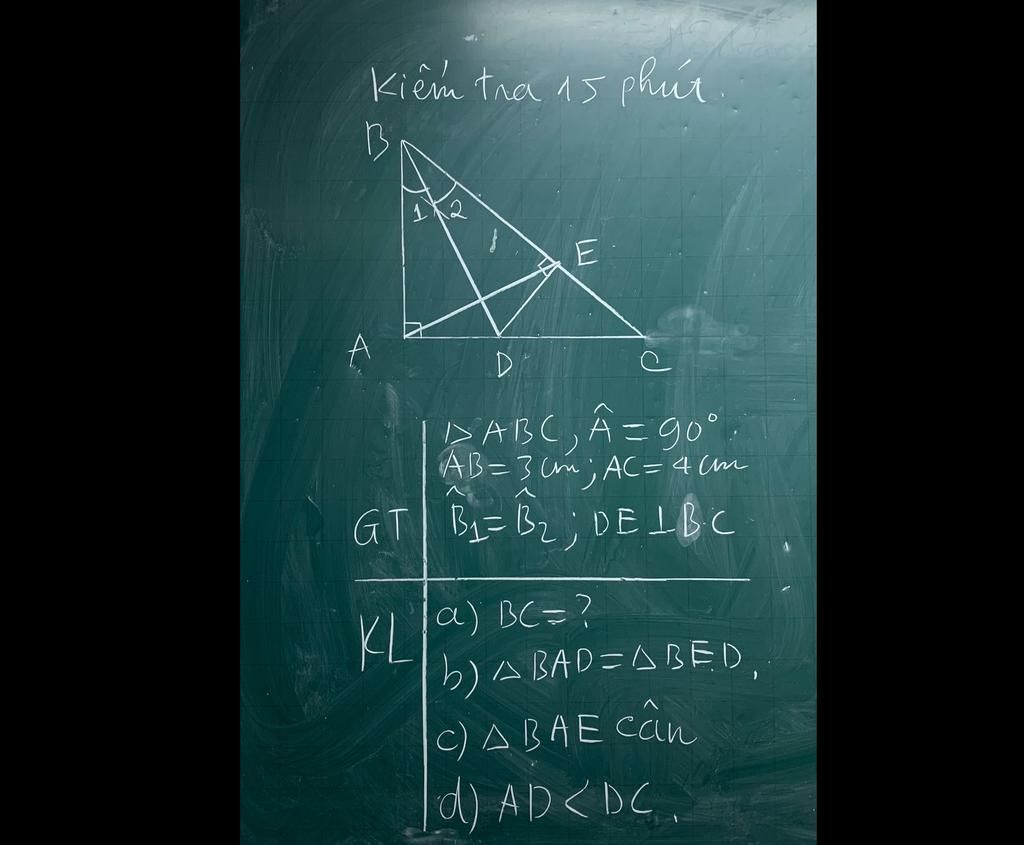 Kiểm tra 15 phút.
B
1 2
E
A
D
C
GT
△ABC, Â = 90°.
AB = 3 cm; AC = 4 cm
B̂₁ = B̂₂; DE ⊥ BC
KL
a) BC = ?
b) △BAD = △BED.
c) △BAE cân
d) AD < DC.